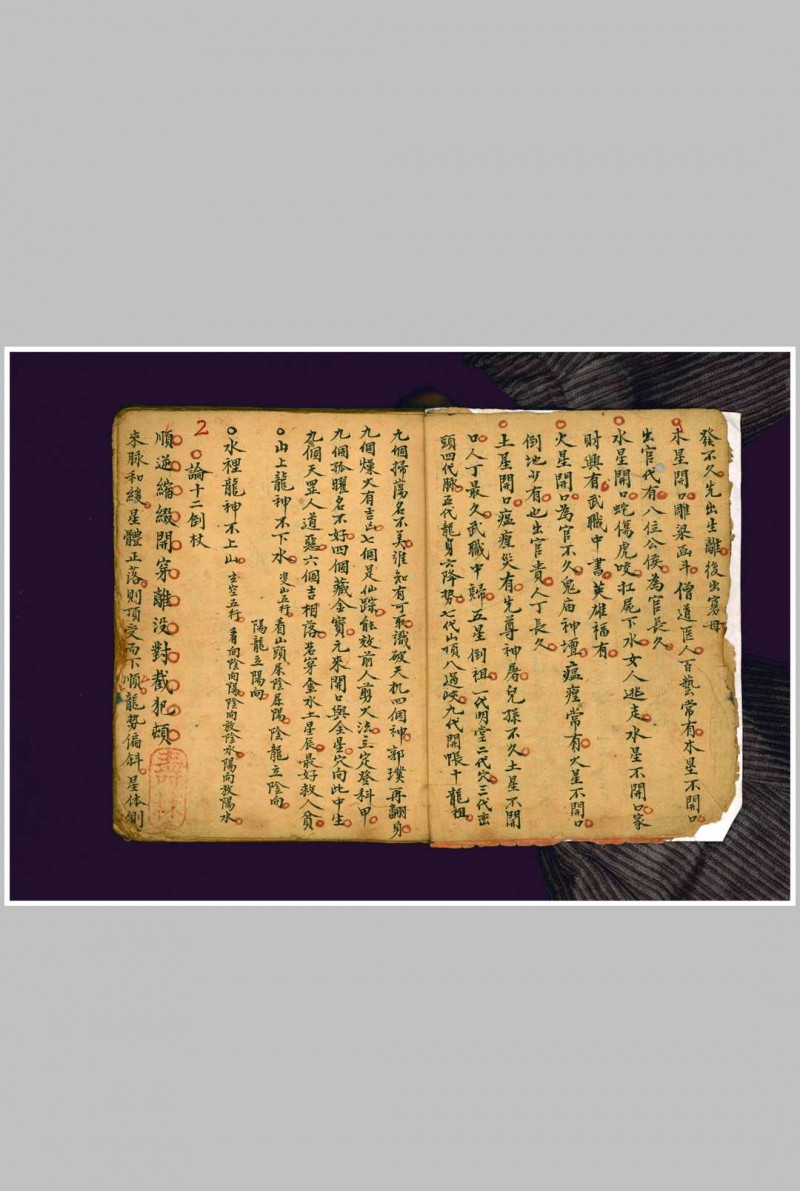 發不久先出生離後出寡母
木星開口雕梁畫斗僧道匠人百藝常有木星不開口
出官代有八位公侯為官長久
水星開口蛇傷虎咬扛尾下水女人逃走水星不開口家
財興有武職中書英雄福有
火星開口為官不久鬼庙神壇瘟瘟常有火星不開口
倒地少有也出官貴人丁長久
土星開口瘟瘟災有先尊神屠兒孫不久土星不開
口人丁最久武職中歸五星倒祖一代明堂二代穴三代巒
頭四代脉五代龍身六降势七代山頂八過峽九代開帳十龍祖
九個掃蕩名不美誰知有可取識破天机四個神郭璞再翻身
九個燥火有吉凶七個是仙踪能效前人剪火法三定登科甲
九個孤曜名不好四個藏金寶元來開口與全星穴向此中生
九個天罡人道惡六個吉相落若穿金水土星辰最好救人貧
山上龍神不下水双山五行看山頭屬陰屬陽陰龍立陰向
陽龍立陽向
水裡龍神不上山玄空五行看向陰向陽陰向放陰水陽向放陽水
2
論十二倒杖
順逆縮綴開穿離没對截犯頓
来脉和緩星體正落則頂受而下順龍势偏斜星体側